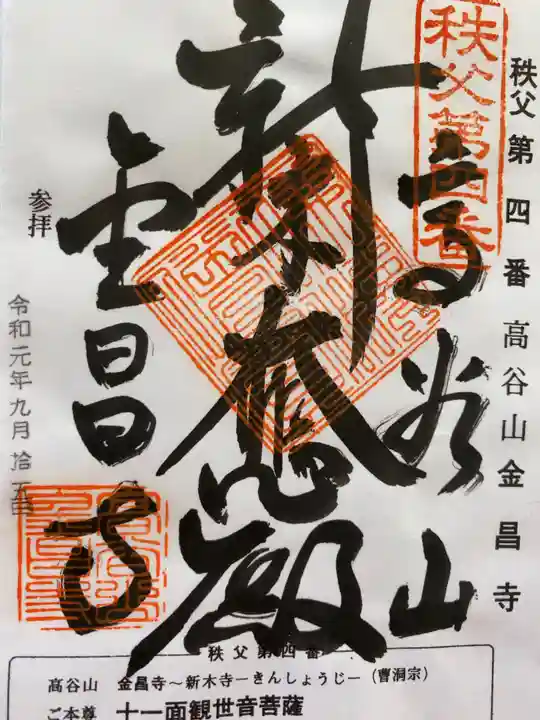 秩父第四番 高谷山金昌寺
秩父第四番
高谷山
新木大悲殿
金昌寺
参拝
令和元年九月拾五日
秩父第四番
高谷山 金昌寺~新木寺ーきんしょうじー(曹洞宗)
ご本尊 十一面観世音菩薩